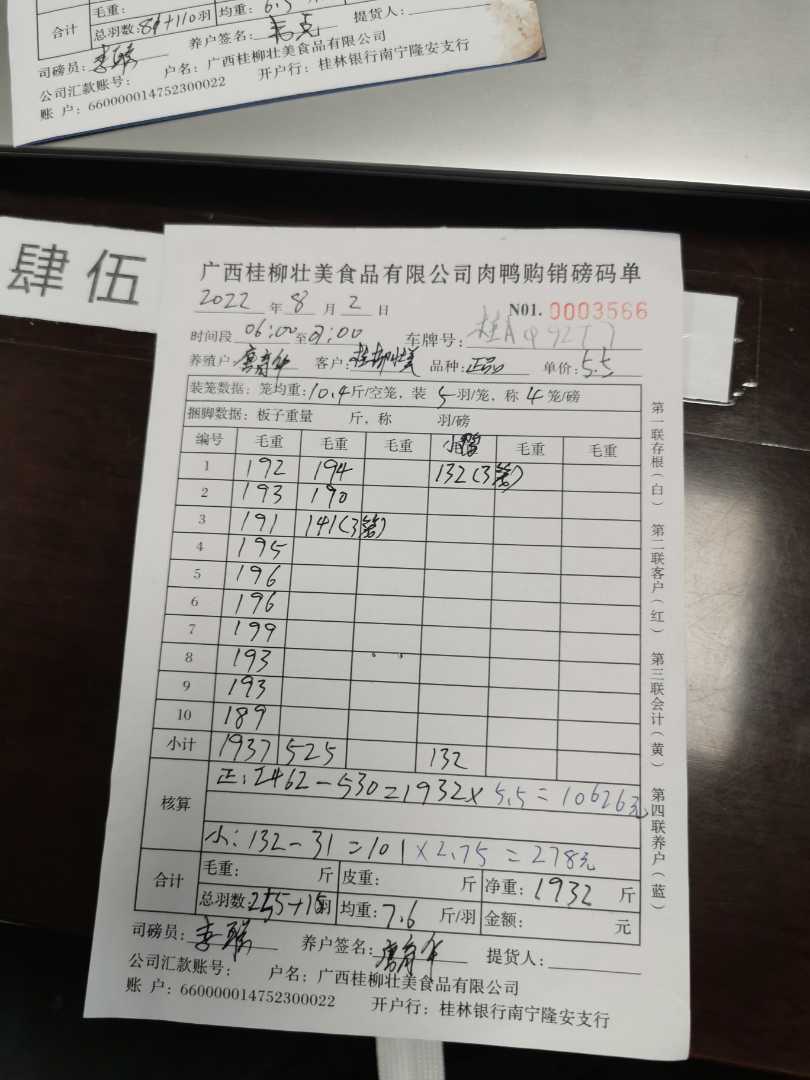 合计 毛重:
总羽数:84+110羽 均重:6.5 提货人:
司磅员: 养户签名:
公司汇款账号: 户名: 广西桂柳壮美食品有限公司
账 户: 660000014752300022 开户行: 桂林银行南宁隆安支行
肆 伍
广西桂柳壮美食品有限公司肉鸭购销磅码单
2022 年 8 月 2 日 N01. 0003566
时间段 06:00 至 车牌号:
养殖户: 客户: 桂柳壮美 品种: 正品 单价: 5.5
装笼数据: 笼均重: 10.4 斤/空笼, 装 5 羽/笼, 称 4 笼/磅
捆脚数据: 板子重量 斤, 称 羽/磅
编号 毛重 毛重 毛重 小鸭 毛重 毛重
1 192 194 132(3笼)
2 193 190
3 191 141(3笼)
4 195
5 196
6 196
7 199
8 193
9 193
10 189
小计 1937 525 132
核算 正: 2462-530=1932× 5.5 = 10626元
小: 132-31=101 ×2.75 = 278元
合计 毛重: 斤 皮重: 斤 净重: 1932 斤
总羽数:255+15羽 均重: 7.6 斤/羽 金额: 元
司磅员: 养户签名: 提货人:
公司汇款账号: 户名: 广西桂柳壮美食品有限公司
账 户: 660000014752300022 开户行: 桂林银行南宁隆安支行
第一联存根(白) 第二联客户(红) 第三联会计(黄) 第四联养户(蓝)